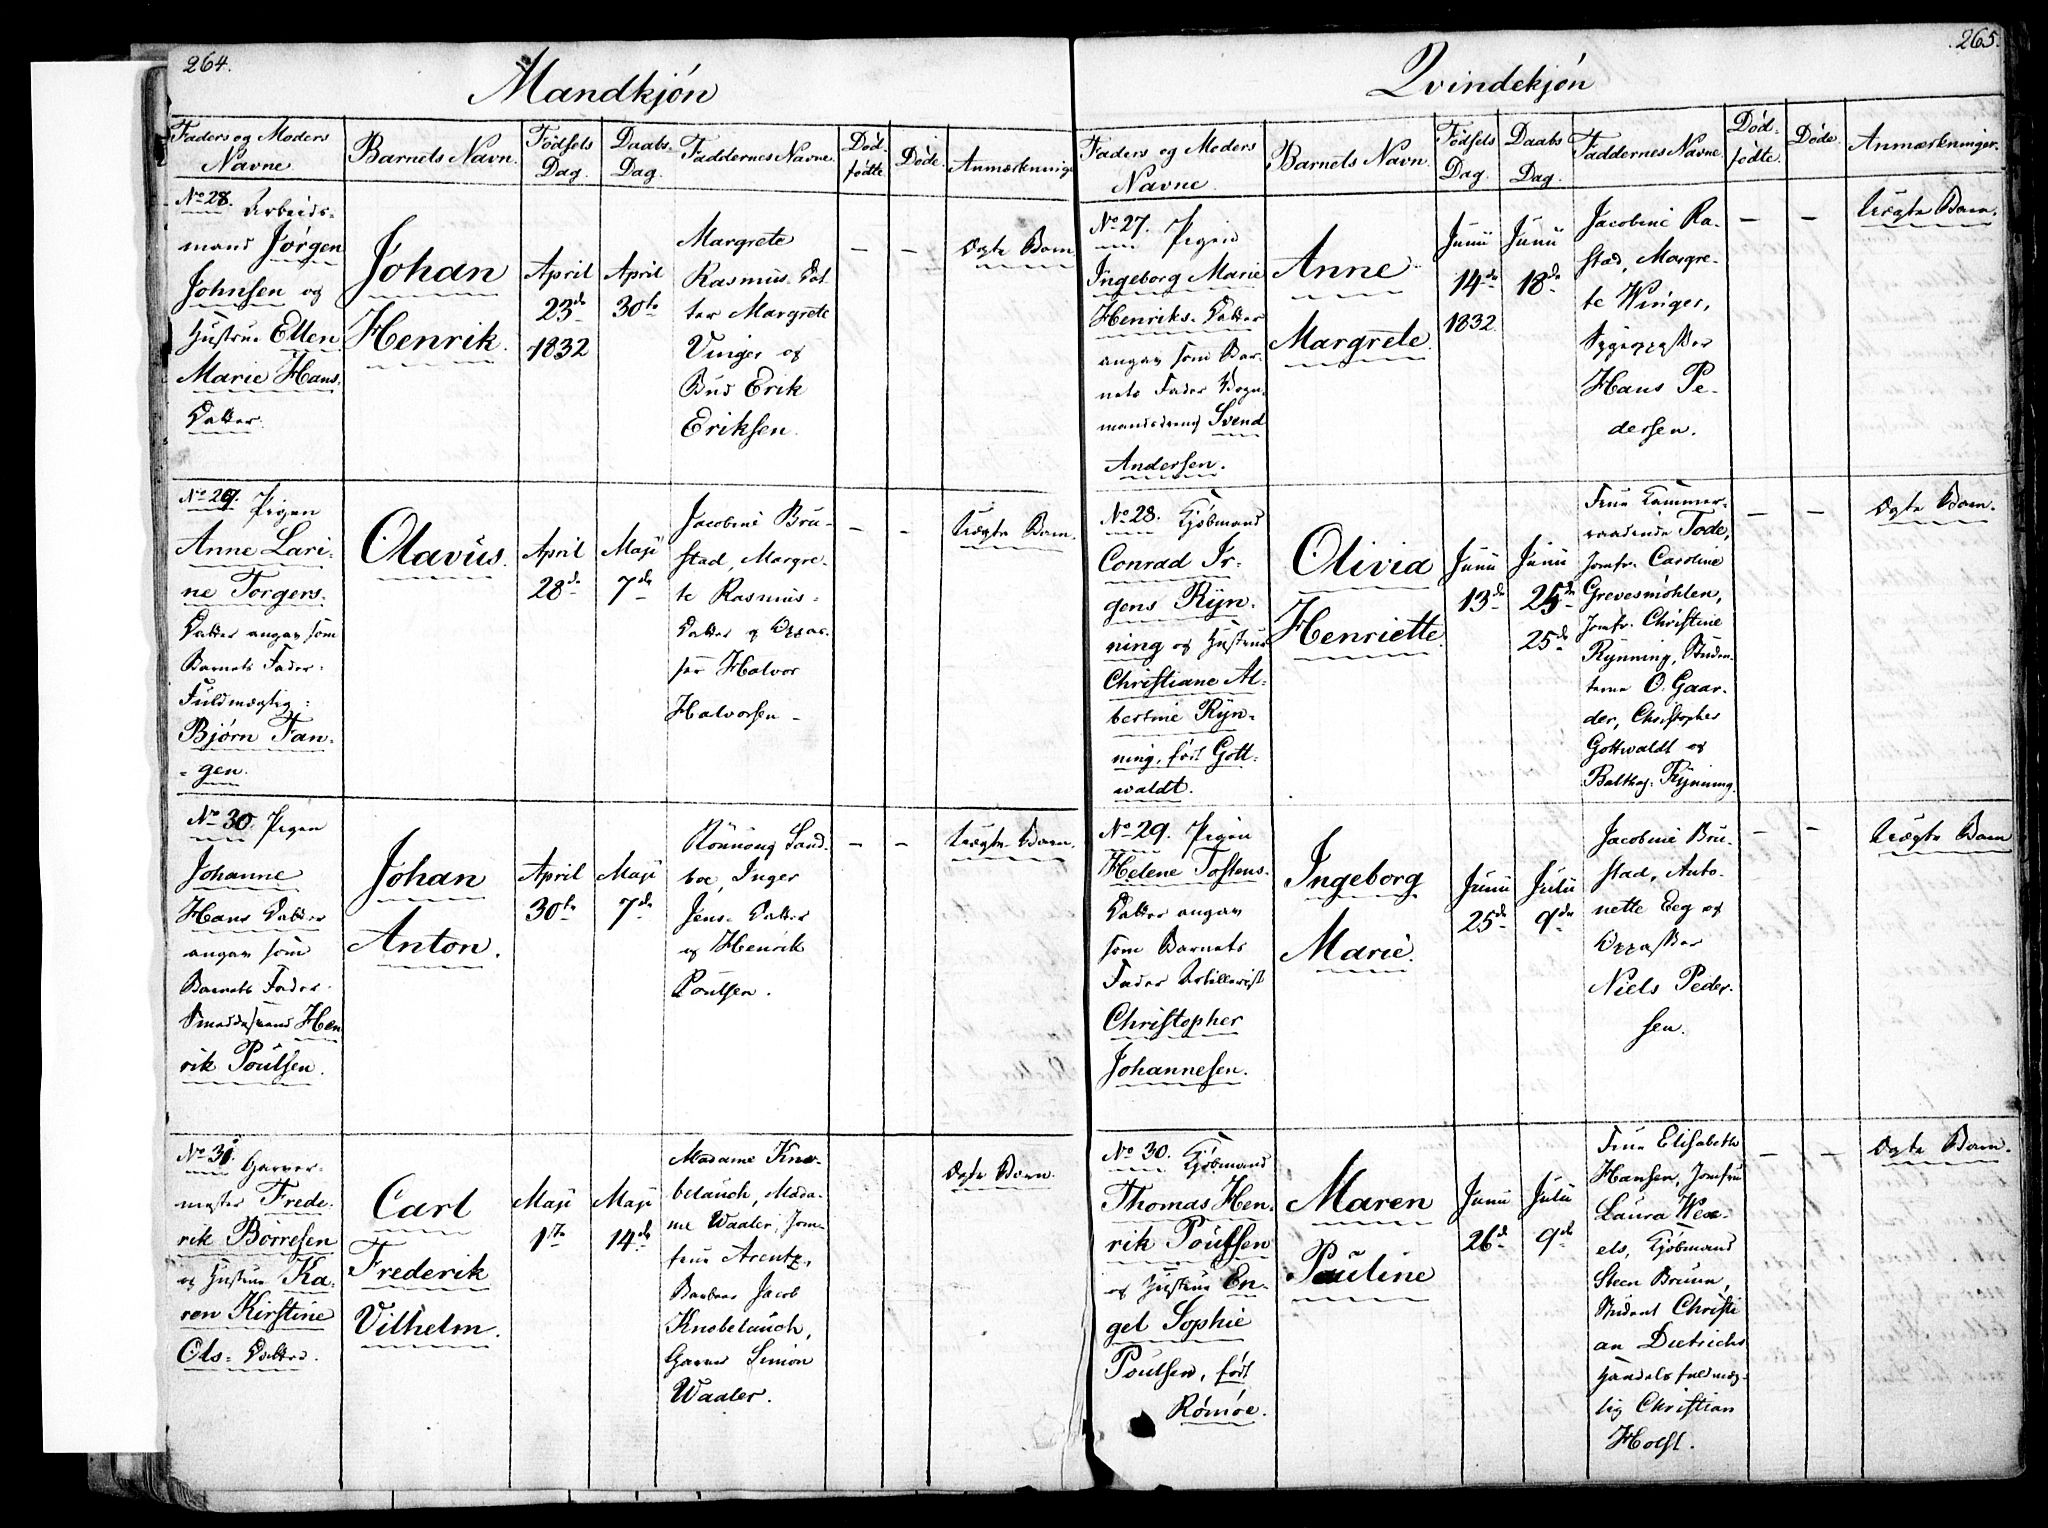 264.
Mandkjön
Faders og Moders Navne
Barnets Navn.
Födsels Dag.
Daabs Dag.
Faddernes Navne
Död-födte
Döde.
Anmærkninger
No 28. Arbeids-
mand Jørgen
Johnsen og
Hustrue Ellen
Marie Hans-
Datter.
Johan
Henrik.
April
23de
1832
April
30te
Margrete
Rasmus-Dat-
ter Margrete
Vinger og
Bud Erik
Eriksen.
— —
Ægte Barn
No 29. Pigen
Anne Lari-
ne Torgers-
Datter angav som
Barnets Fader:
Fuldmægtig:
Bjørn Fan-
gen.
Olavus.
April
28de
Maji
7de
Jacobine Bru-
stad, Margre-
te Rasmus-
Datter og Oppas-
ser Halvor
Halvorsen
— —
Uægte Barn.
No 30. Pigen
Johanne
Hans Datter
angav som
Barnets Fader
Smeddesvend Hen
rik Poulsen.
Johan
Anton.
April
30te
Maji
7de
Rönnoug Sand-
boe, Inger
Jens-Datter
og Henrik
Poulsen.
— —
Uægte Barn.
No 31. Garver-
mester Frede-
rik Börresen
og Hustrue Ka-
ren Kirstine
Ols-Datter.
Carl
Frederik
Vilhelm.
Maji
1ste
Maji
14de
Madame Kno-
belauch, Mada-
me Waaler, Jom-
frue Arentz,
Jacob
Knobelauch,
Garver Simon
Waaler.
Ægte Barn.
265.
Qvindekjön
Faders og Moders Navne
Barnets Navn.
Födsels Dag.
Daabs Dag.
Faddernes Navne
Död-födte.
Döde.
Anmærkninger.
No 27. Pigen
Ingeborg Marie
Henriks-Datter
angav som Bar-
nets Fader Vogn-
mandsdreng Svend
Andersen.
Anne
Margrete.
Junii
14de
1832
Junii
18de
Jacobine Ra-
stad, Margre-
te Winger,
Hans Pe-
dersen.
— —
Uægte Barn.
No 28. Kjöbmand
Conrad Ir-
gens Ryn-
ning og Hustrue
Christiane Al-
bertine Ryn-
ning, föd Gott-
waldt.
Olivia
Henriette.
Junii
13de
Junii
25de
25de
Frue Kammer-
raadinde Tode,
Jomfr. Caroline
Grevesmöhlen,
Jomfr. Christine
Rynning, Studen-
terne O. Gaar-
der, Christopher
Gottwaldt og
Balthaz: Rynning.
— —
Ægte Barn.
No 29. Pigen
Helene Tostens-
Datter angav
som Barnets
Fader Artillerist
Christopher
Johannesen.
Ingeborg
Marie.
Junii
25de
Julii
9de
Jacobine Bru-
stad, Anto-
nette Eeg og
Oppasser
Niels Peder-
sen.
— —
Uægte Barn
No 30. Kjöbmand
Thomas Hen-
rik Poulsen
og Hustrue En-
gel Sophie
Poulsen, föd
Römöe.
Maren
Pauline
Junii
26de
Julii
9de
Frue Elisabeth
Hansen, Jomfru
Laura Wex-
els, Kjöbmand
Steen Bruun,
Student Christi
an Dietrichs
Handels fuldmæg-
tig Christian
Holst.
— —
Ægte Barn.